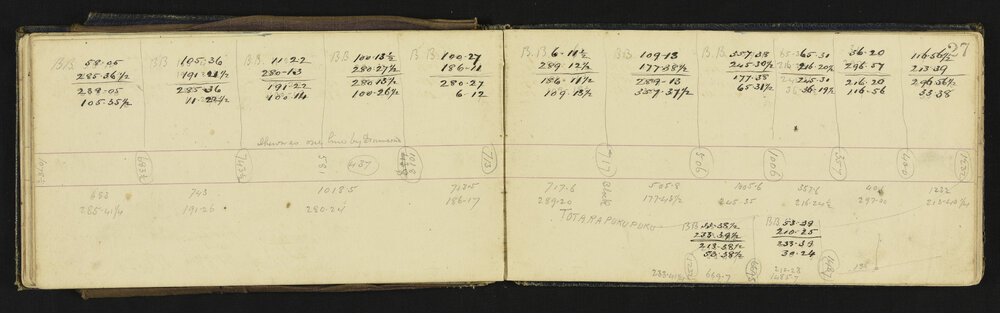 27
B.B 58.05 105.36 B.B 11.22 B.B 100.13½ B B 100.27
285.36½ 191.21½ 280.13 280.27½ 186.11
238.05 285.36 191.22 280.13½ 280.27
105.35½ 11.22½ 100.14 100.26½ 6.12
B.B 6.11½ B.B 109.13 B.B 357.38 65.31 36.20 116.56½
289.12½ 177.38½ 245.30½ 216.20½ 296.57 213.39
186.11½ 289.13 177.38 245.31 216.20 296.56½
109.13½ 357.37½ 65.31½ 36.19½ 116.56 33.38
Shown as one line by
743½ 581 437 1018 713
717 506 1006 357 400 1232
683 743 1018.5 713.5
285.41¼ 191.26 280.24 186.17
717.6 Block 505.8 1005.6 357.6 400 1232
289.20 177.43½ 245.35 216.24½ 297.00 213.43¼
TOTARAPUKUPUKU
B.B 33.38½ B.B 53.39
233.39½ 210.25
213.38½ 233.39
53.38½ 30.24
233.41½ 669.7 212.28
1485.7